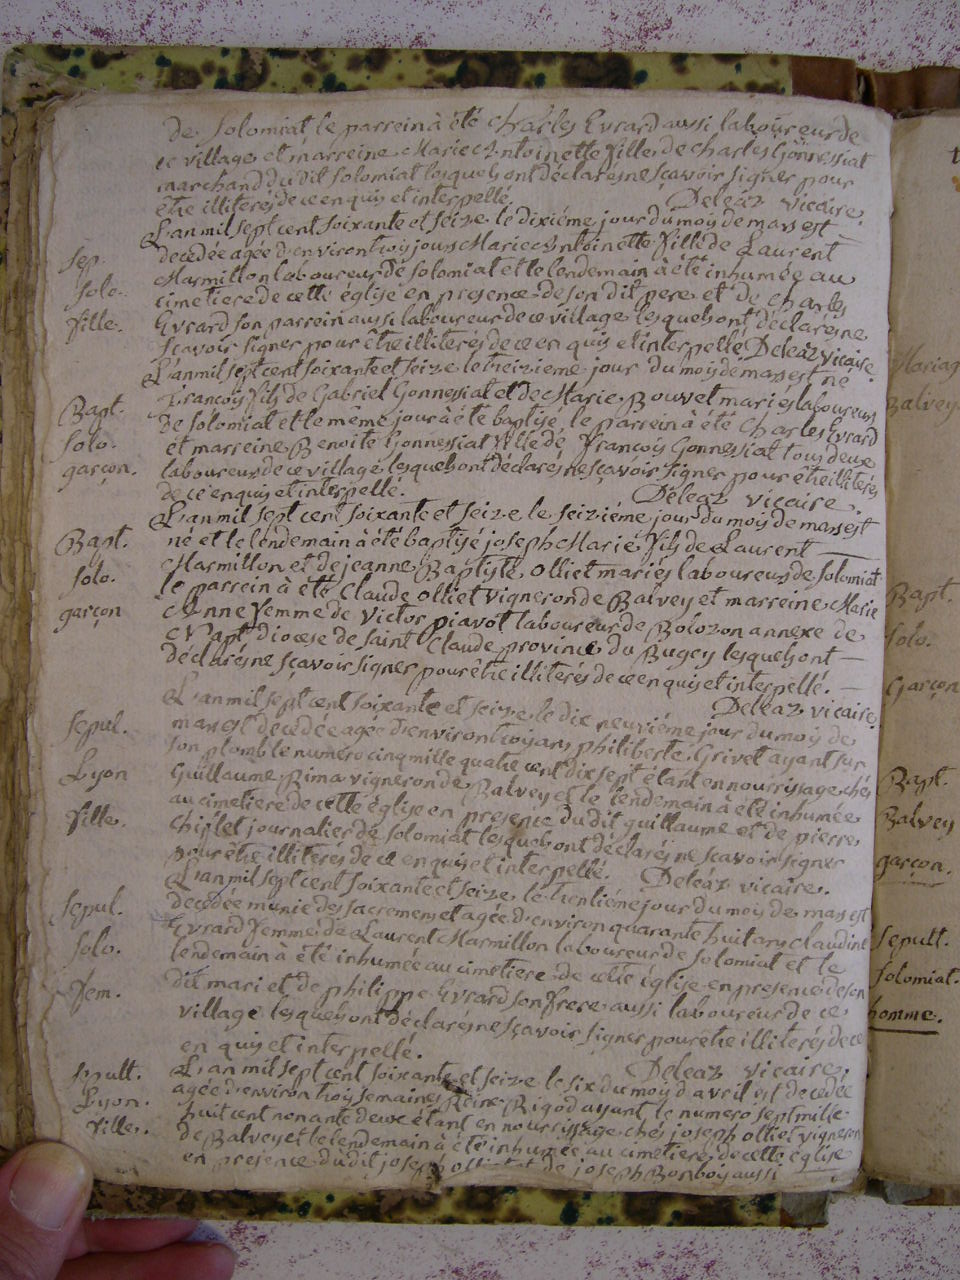 de Solomiat le parrein à été Charles Evrard aussi laboureur de
ce village et marreine Marie Antoinette fille de Charles Gonnessiat
marchand du dit Solomiat lesquels ont déclarés ne sçavoir signer pour
être illiterés de ce enquis et interpellé. Deléaz vicaire.
L'an mil sept cent soixante et seize le dixiéme jour du moy de mars est
Sep. decedée agée d'environ troy jours Marie Antoinette fille de Laurent
Solo. Marmillon laboureur de Solomiat et le lendemain à été inhumée au
fille. cimetiere de cette église en presence de son dit pere et de Charles
Evrard son parrein aussi laboureur de ce village lesquels ont déclarés ne
sçavoir signer pour être illiterés de ce en quis et interpellé. Deleaz vicaire.
L'an mil sept cent soixante et seize le treizieme jour du moy de mars est né
Bapt. françois fils de Gabriel Gonnessiat et de Marie Bouvet mariés laboureurs
Solo. de Solomiat et le même jour à été baptisé, le parrein à été Charles Evrard
garçon. et marreine Benoite Gonnessiat fille de françois Gonnessiat tous deux
laboureurs de ce village lesquels ont déclarés ne sçavoir signer pour être illiterés
de ce enquis et interpellé. Deleaz vicaire.
L'an mil sept cent soixante et seize le seiziéme jour du moy de mars est
Bapt. né et le lendemain à été baptisé joseph Marie fils de Laurent
Solo. Marmillon et de jeanne Baptiste Olliet mariés laboureurs de Solomiat
garçon le parrein à été Claude Olliet vigneron de Balvey et marreine Marie
Anne femme de Victor piavot laboureur de Bolozon annexe de
Napt diocese de Saint Claude province du Bugey lesquels ont
déclarés ne sçavoir signer pour être illiterés de ce enquis et interpellé.
Deleaz vicaire.
L'an mil sept cent soixante et seize le dix neuviéme jour du moy de
Sepul. mars est décedée agée d'environ troy ans philiberte Grivet ayant sur
son plomb le numéro cinq mille quatre cent dix sept étant en nourrissage chés
Lyon Guillaume Rima vigneron de Balvey et le lendemain à été inhumée
fille. au cimetiere de cette église en presence du dit guillaume et de pierre
Chiflet journalier de Solomiat lesquels ont déclarés ne sçavoir signer
pour être illiterés de ce enquis et interpellé. Deleaz vicaire.
L'an mil sept cent soixante et seize le trentiéme jour du moy de mars est
Sepul. decedée munie des sacremens et agée d'environ quarante huit ans claudine
Solo. Evrard femme de Laurent Marmillon laboureur de Solomiat et le
lendemain à été inhumée au cimetiere de cette église en presence de son
fem. dit mari et de philippe Evrard son frere aussi laboureur de ce
village lesquels ont déclarés ne sçavoir signer pour être illiterés de ce
en quis et interpellé.
Deleaz vicaire.
Sepult. L'an mil sept cent soixante et seize le six du moy d'avril est decedée
Lyon. agée d'environ troy semaines Reine Rigod ayant le numero sept mille
fille. huit cent nonante deux étant en nourrissage chés joseph olliet vigneron
de Balvey et le lendemain à été inhumée au cimetiere de cette église
en presence du dit joseph olliet et de joseph Bonboy aussi
Mariag
Balvey
Bapt.
Solo.
Garçon
Bapt.
Balvey
garçon.
Sepult.
Solomiat.
homme.